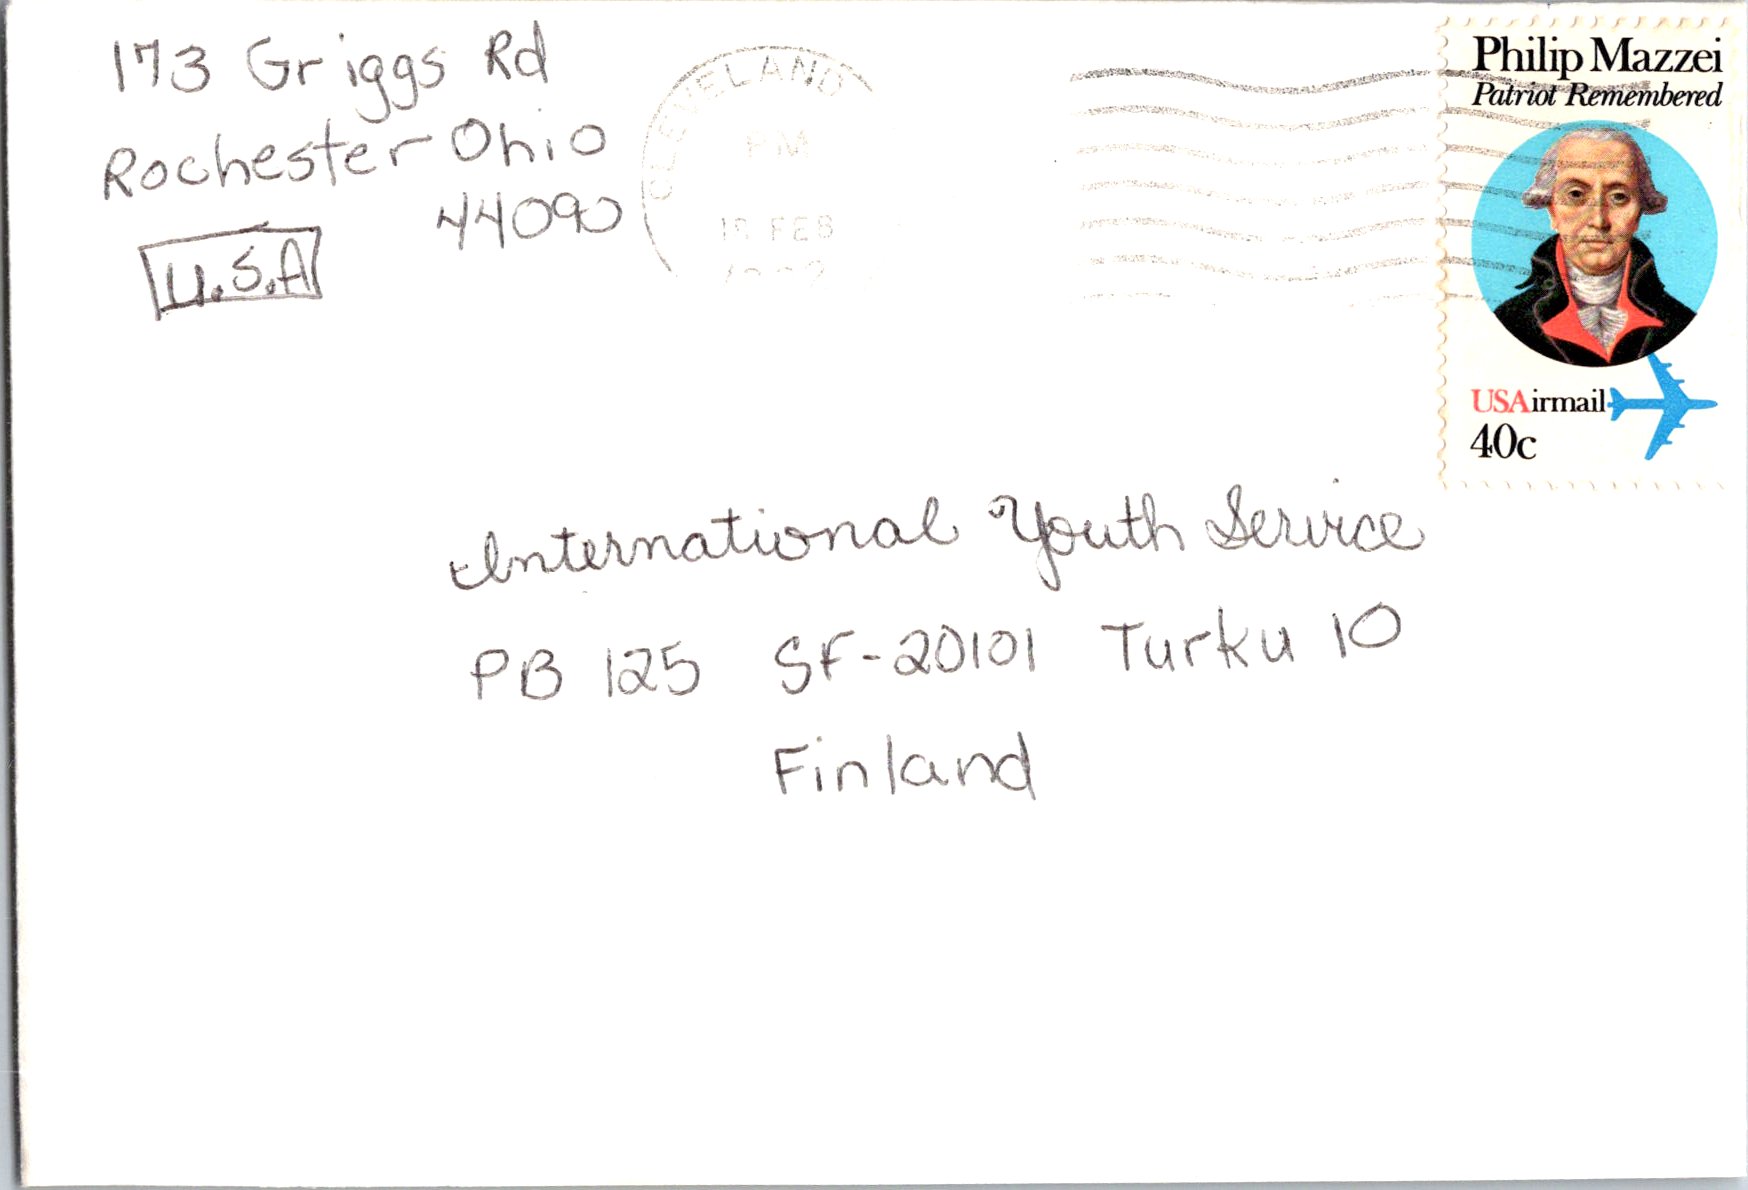 173 Griggs Rd
Rochester Ohio
44090
U.S.A
CLEVELAND
PM
FEB
Philip Mazzei
Patriot Remembered
USAirmail
40c
International Youth Service
PB 125 SF-20101 Turku 10
Finland